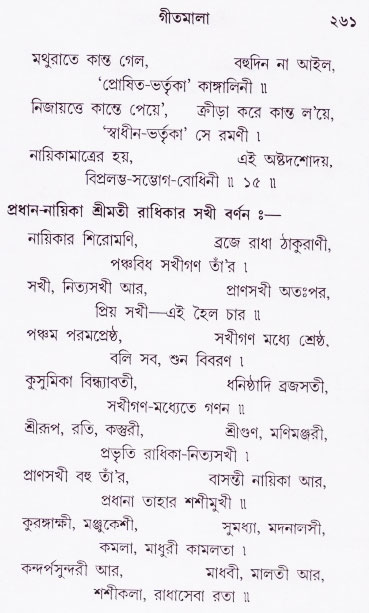 গীতমালা ২৬১
মথুরাতে কান্ত গেল, বহুদিন না আইল,
‘প্রোষিত-ভর্তৃকা’ কাঙ্গালিনী ॥
নিজায়ত্তে কান্তে পেয়ে’, ক্রীড়া করে কান্ত ল’য়ে,
‘স্বাধীন-ভর্তৃকা’ সে রমণী ।
নায়িকামাত্রের হয়, এই অষ্টদশোদয়,
বিপ্রলম্ভ-সম্ভোগ-বোধিনী ॥ ১৫ ॥
প্রধান-নায়িকা শ্রীমতী রাধিকার সখী বর্ণন ঃ—
নায়িকার শিরোমণি, ব্রজে রাধা ঠাকুরাণী,
পঞ্চবিধ সখীগণ তাঁ’র ।
সখী, নিত্যসখী আর, প্রাণসখী অতঃপর,
প্রিয় সখী—এই হৈল চার ॥
পঞ্চম পরমপ্রেষ্ঠ, সখীগণ মধ্যে শ্রেষ্ঠ,
বলি সব, শুন বিবরণ ।
কুসুমিকা বিন্ধ্যাবতী, ধনিষ্ঠাদি ব্রজসতী,
সখীগণ-মধ্যেতে গণন ॥
শ্রীরূপ, রতি, কস্তুরী, শ্রীগুণ, মণিমঞ্জরী,
প্রভৃতি রাধিকা-নিত্যসখী ।
প্রাণসখী বহু তাঁ’র, বাসন্তী নায়িকা আর,
প্রধানা তাহার শশীমুখী ॥
কুরঙ্গাক্ষী, মঞ্জুকেশী, সুমধ্যা, মদনালসী,
কমলা, মাধুরী কামলতা ।
কন্দর্পসুন্দরী আর, মাধবী, মালতী আর,
শশীকলা, রাধাসেবা রতা ॥